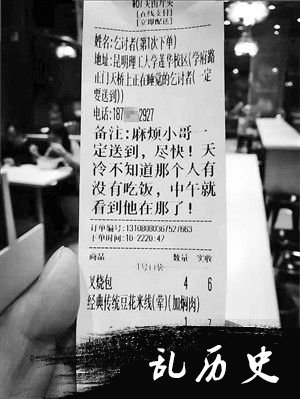 [在线支付]
[立即配送]
姓名:乞讨者(第1次下单)
地址:昆明理工大学莲华校区(学府路
正门天桥上正在睡觉的乞讨者(一定
要送到))
电话:187 2927
备注:麻烦小哥一
定送到，尽快！天
冷不知道那个人有
没有吃饭，中午就
看到他在那了！
订单编号:13108080367527663
下单时间:10-2220:42
商品 数量 实收
1号口袋
叉烧包 4 6
经典传统豆花米线(荤)(加焖肉)
1 7
乱历史